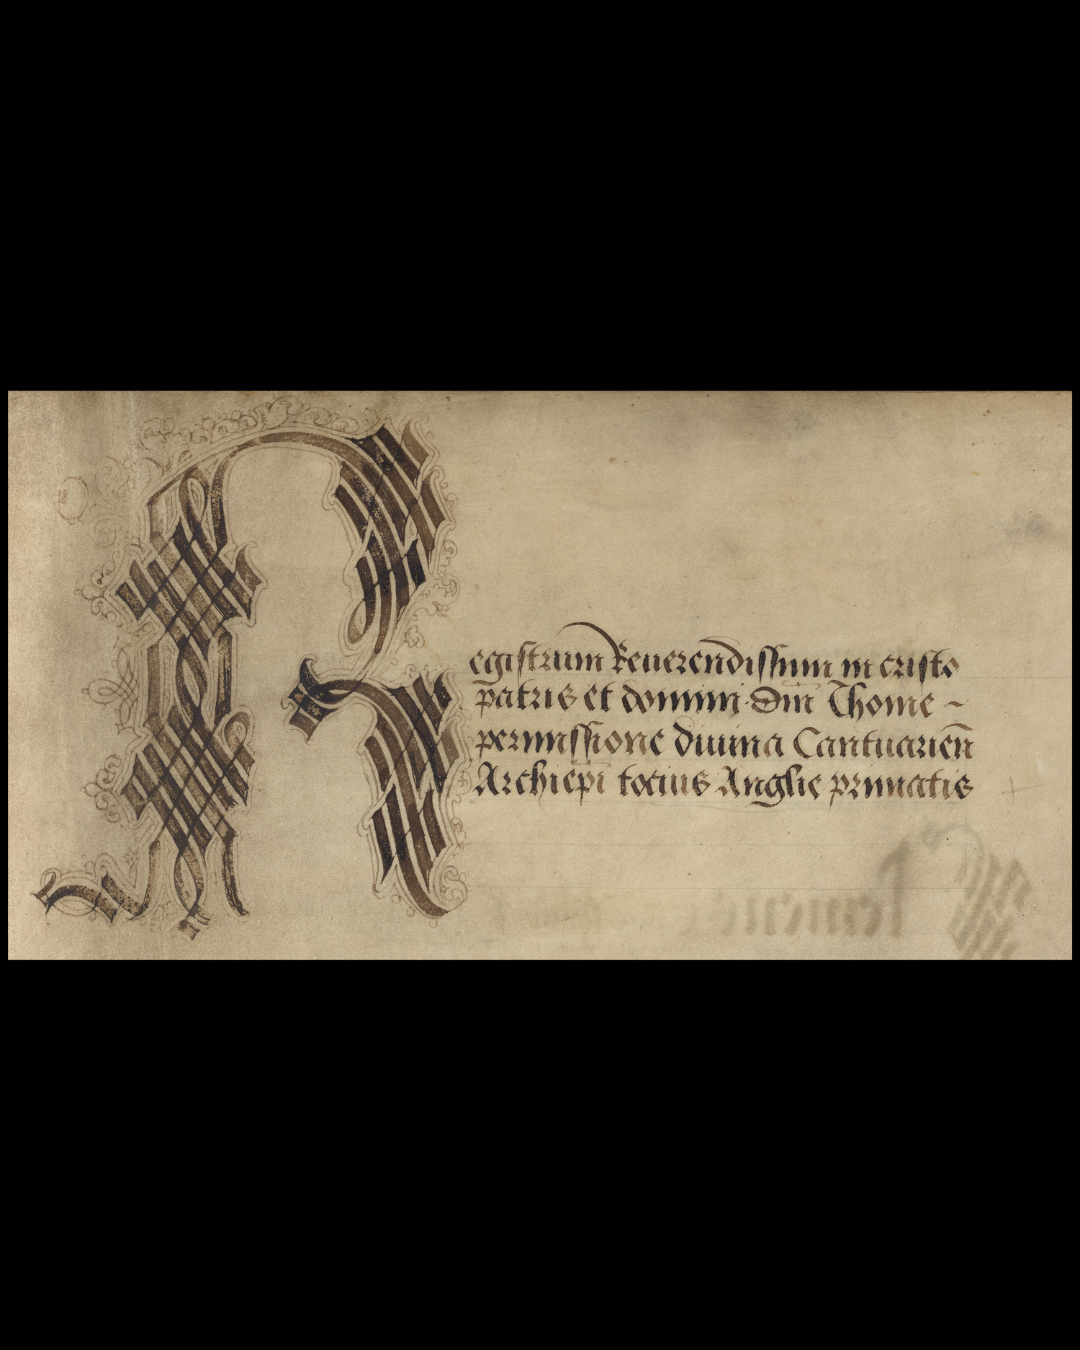 Registrum Reuerendissimi in cristo
p̄atris et domini dn̄i Thome ~
permissione diuina Cantuarien̄
Archiep̄i tocius Anglie primatis